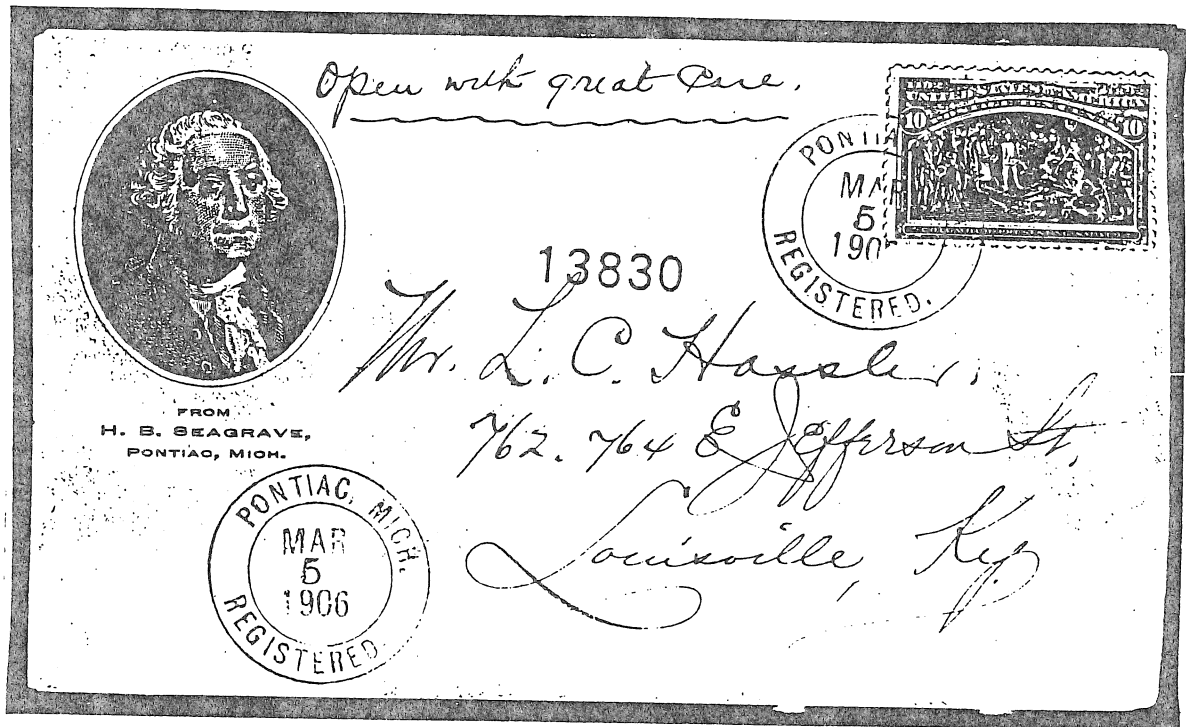 Open with great Care.
UNITED STATES OF AMERICA
10 10
PONTIA
MAR
5
190
REGISTERED.
13830
Mr. L. C. Hassler,
762. 764 E Jefferson St,
Louisville, Ky
FROM
H. B. SEAGRAVE,
PONTIAC, MICH.
PONTIAC, MICH.
MAR
5
1906
REGISTERED